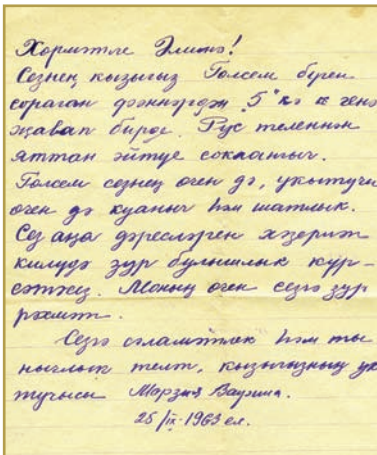 Хөрмәтле Әлинә!
Сезнең кызыгыз Гөлсем бүген
сораган фәннәрдән "5"кә генә
җавап бирде. Рус теленнән
яттан әйтүе соклангыч.
Гөлсем сезнең өчен дә, укытучы
өчен дә куаныч һәм шатлык.
Сез аңа дәресләрен хәзерләп
килүдә зур булышлык күр-
сәткез. Моның өчен сезгә зур
рәхмәт.
Сезгә сәламәтлек һәм ты
нычлык телим, кызыгызның ук
тучысы Мәрзия
25/IX-1963 ел.